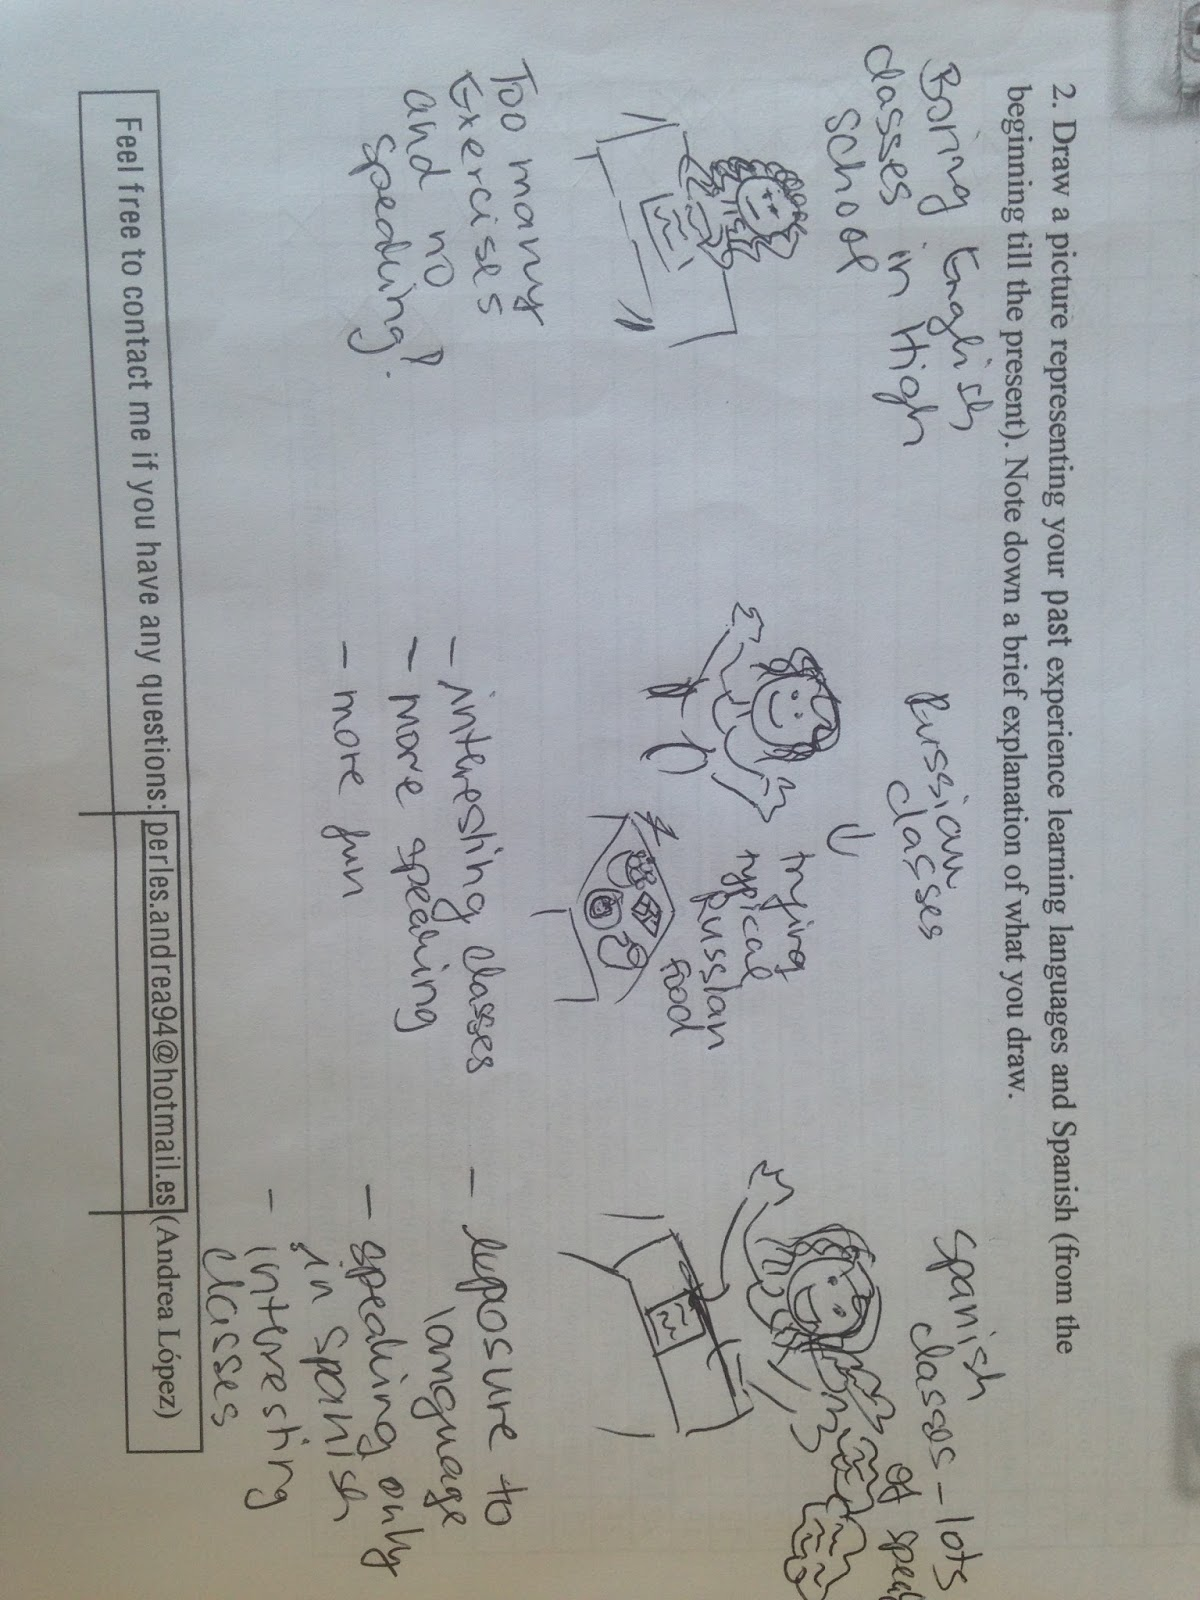 2. Draw a picture representing your past experience learning languages and Spanish (from the
beginning till the present). Note down a brief explanation of what you draw.
Boring English
classes in High
school
Too many
Exercises
and no
speaking!
Russian
classes
trying
typical
Russian
food
- interesting classes
- more speaking
- more fun
Spanish
classes - lots
of speak
- exposure to
language
- speaking only
in spanish
- interesting
classes
Feel free to contact me if you have any questions: perles.andrea94@hotmail.es (Andrea López)